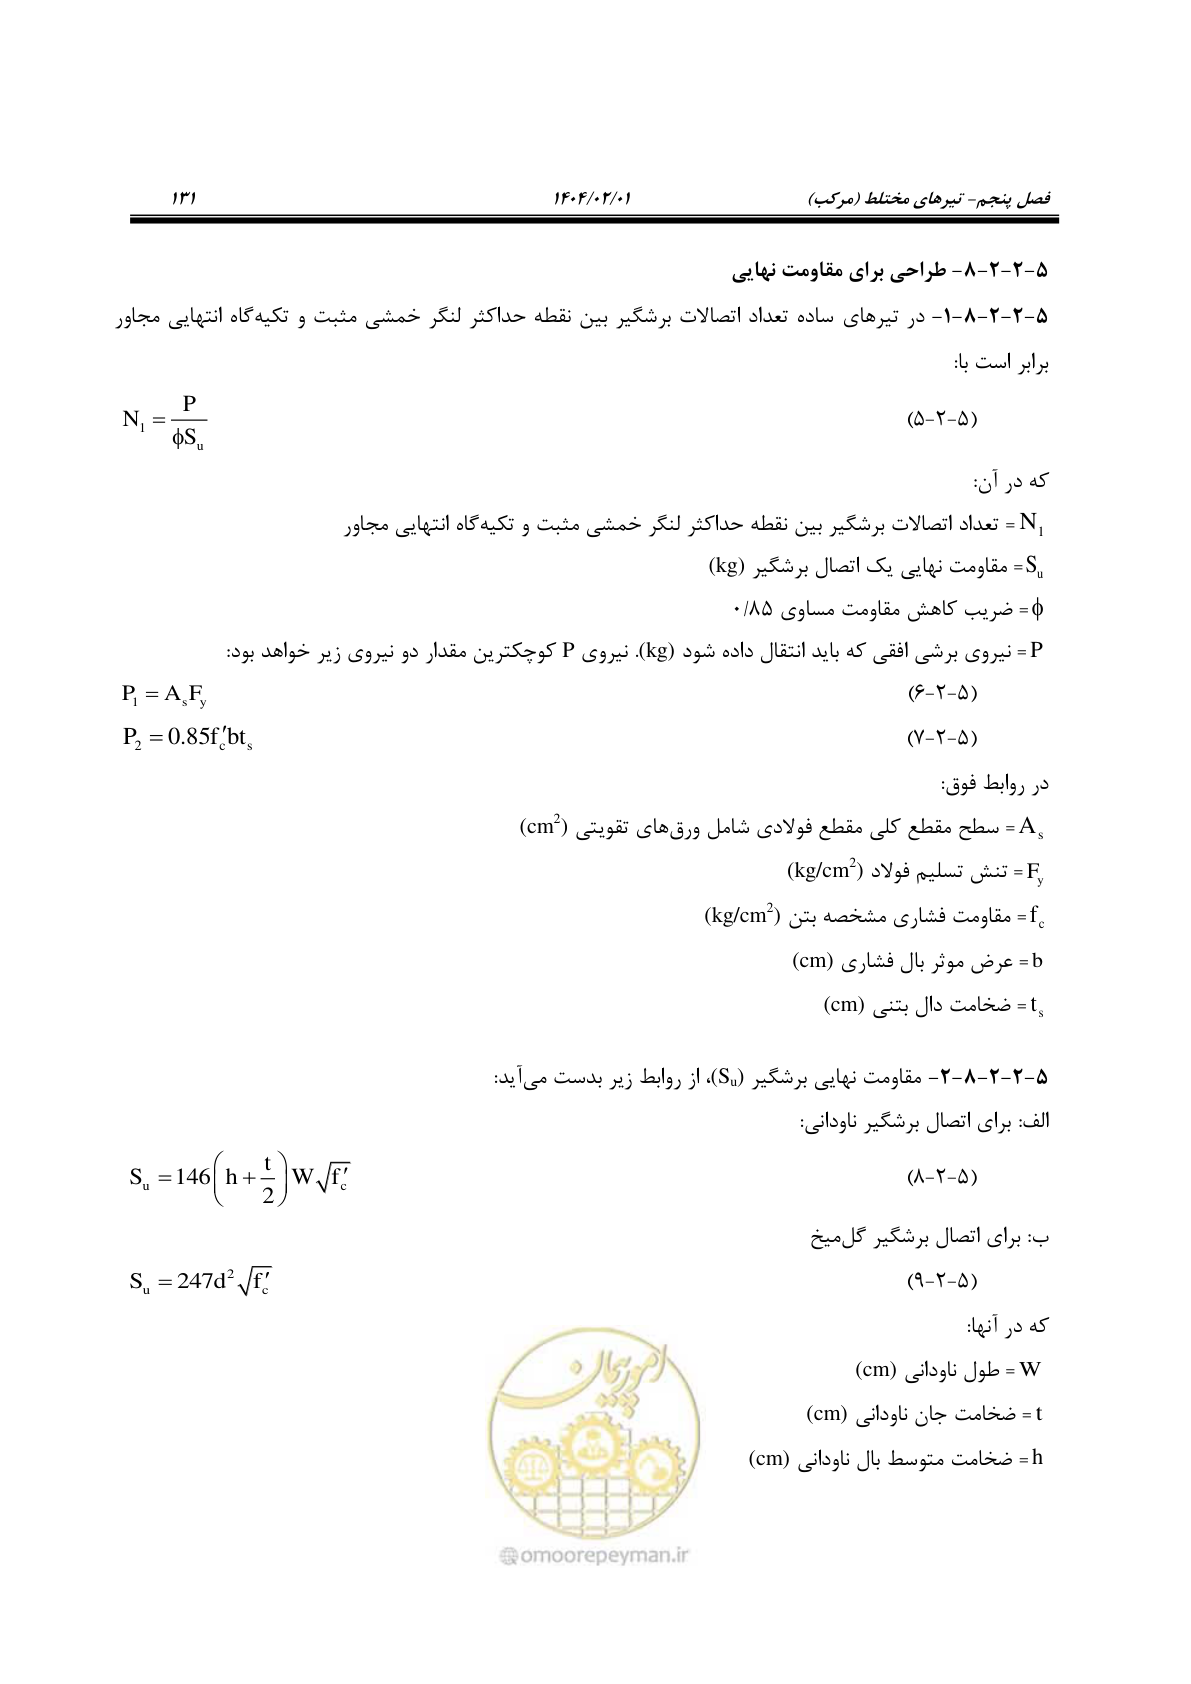 فصل پنجم- تیرهای مختلط (مرکب) ۱۴۰۴/۰۲/۰۱ ۱۳۱
۵-۲-۲-۸- طراحی برای مقاومت نهایی
۵-۲-۲-۸-۱- در تیرهای ساده تعداد اتصالات برشگیر بین نقطه حداکثر لنگر خمشی مثبت و تکیه‌گاه انتهایی مجاور
برابر است با:
N₁ = P / ϕSᵤ (۵-۲-۵)
که در آن:
N₁ = تعداد اتصالات برشگیر بین نقطه حداکثر لنگر خمشی مثبت و تکیه‌گاه انتهایی مجاور
Sᵤ = مقاومت نهایی یک اتصال برشگیر (kg)
ϕ = ضریب کاهش مقاومت مساوی ۰/۸۵
P = نیروی برشی افقی که باید انتقال داده شود (kg). نیروی P کوچکترین مقدار دو نیروی زیر خواهد بود:
P₁ = AₛF_y (۵-۲-۶)
P₂ = 0.85f′_c btₛ (۵-۲-۷)
در روابط فوق:
Aₛ = سطح مقطع کلی مقطع فولادی شامل ورق‌های تقویتی (cm²)
F_y = تنش تسلیم فولاد (kg/cm²)
f_c = مقاومت فشاری مشخصه بتن (kg/cm²)
b = عرض موثر بال فشاری (cm)
tₛ = ضخامت دال بتنی (cm)
۵-۲-۲-۸-۲- مقاومت نهایی برشگیر (Sᵤ)، از روابط زیر بدست می‌آید:
الف: برای اتصال برشگیر ناودانی:
Sᵤ = 146(h + t/2)W√f′_c (۵-۲-۸)
ب: برای اتصال برشگیر گل‌میخ
Sᵤ = 247d²√f′_c (۵-۲-۹)
که در آنها:
W = طول ناودانی (cm)
t = ضخامت جان ناودانی (cm)
h = ضخامت متوسط بال ناودانی (cm)
امور پیمان
@omoorepeyman.ir